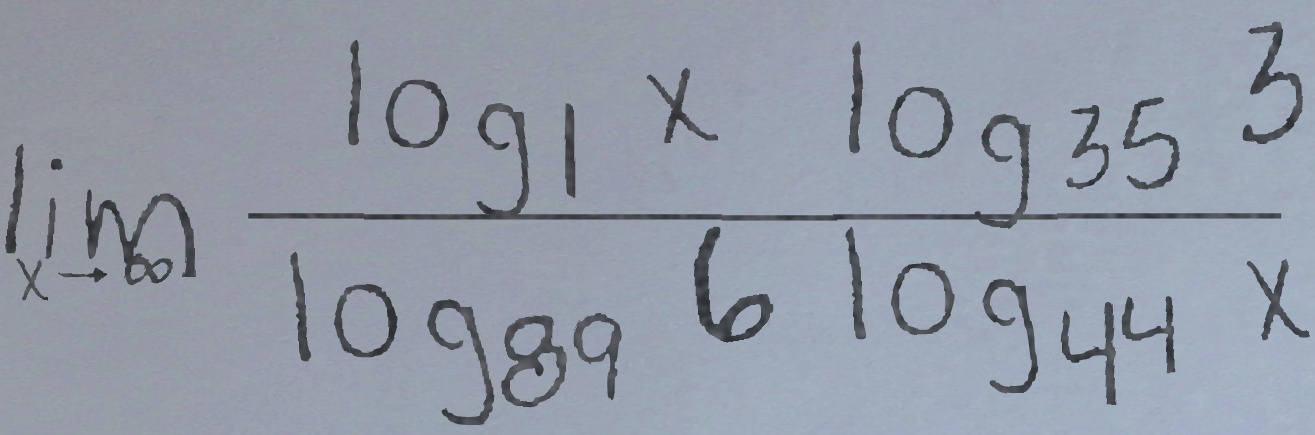 lim x→∞ \frac{log_1 x log_{35} 3}{log_{89} 6 log_{44} x}